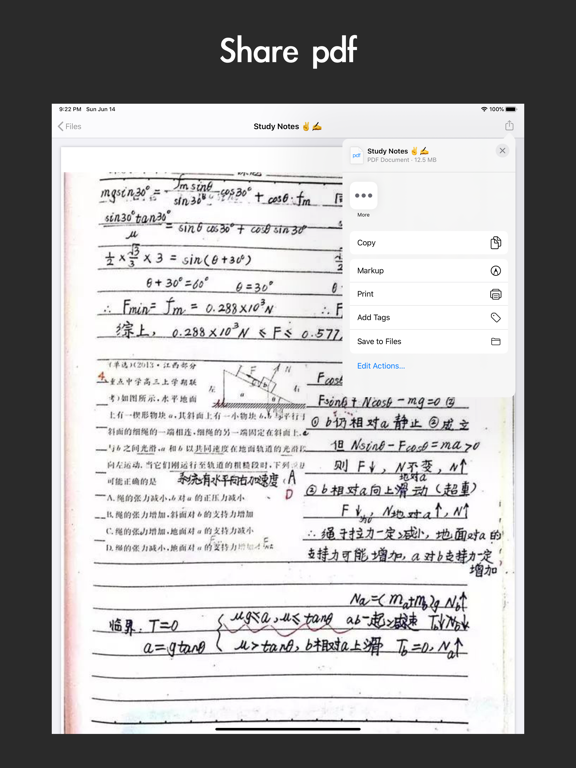 Share pdf
9:22 PM Sun Jun 14
100%
Files
Study Notes ✌️✍️
Study Notes ✌️✍️
PDF Document · 12.5 MB
pdf
More
Copy
Markup
Print
Add Tags
Save to Files
Edit Actions...
mgsin30° = fm sinθ / sin30° cos30° + cosθ·fm
sin30°tan30° / μ = sinθ cos30° + cosθ sin30°
1/2 × √3/3 × 3 = sin(θ+30°)
θ+30°=60° θ=30°
∴ Fmin= fm = 0.288×10³N ∴ F
综上, 0.288×10³N ≤ F ≤ 0.577
4.
(单选)(2013·江西部分
重点中学高三上学期联
考)如图所示,水平地面
上有一楔形物块a,其斜面上有一小物块b,b与平行于
斜面的细绳的一端相连,细绳的另一端固定在斜面上.a
与b之间光滑,a和b以共同速度在地面轨道的光滑段
向左运动.当它们刚运行至轨道的粗糙段时,下列说法
可能正确的是 系统有水平向右加速度 (A
D
A.绳的张力减小,b对a的正压力减小
B.绳的张力增加,斜面对b的支持力增加
C.绳的张力减小,地面对a的支持力减小
D.绳的张力减小,地面对a的支持力增加
左
右
F
N
Fcosθ
Fsinθ+Ncosθ-mg=0 ②
① b仍相对a静止 ②成立
但 Nsinθ-Fcosθ=ma>0
则 F↓, N不变, N↑
地对a
② b相对a向上滑动 (超重)
F↓, N地对a↑, N↑
∴ 绳子拉力一定减小, 地面对a的
支持力可能增加, a对b支持力一定
增加
Na=(ma+mb)g Nb↑
临界: T=0
a=gtanθ
μg≤a, μ≤tanθ ab一起减速 Tb↓Nb↓
μ>tanθ, b相对a上滑 Tb=0, Na↑